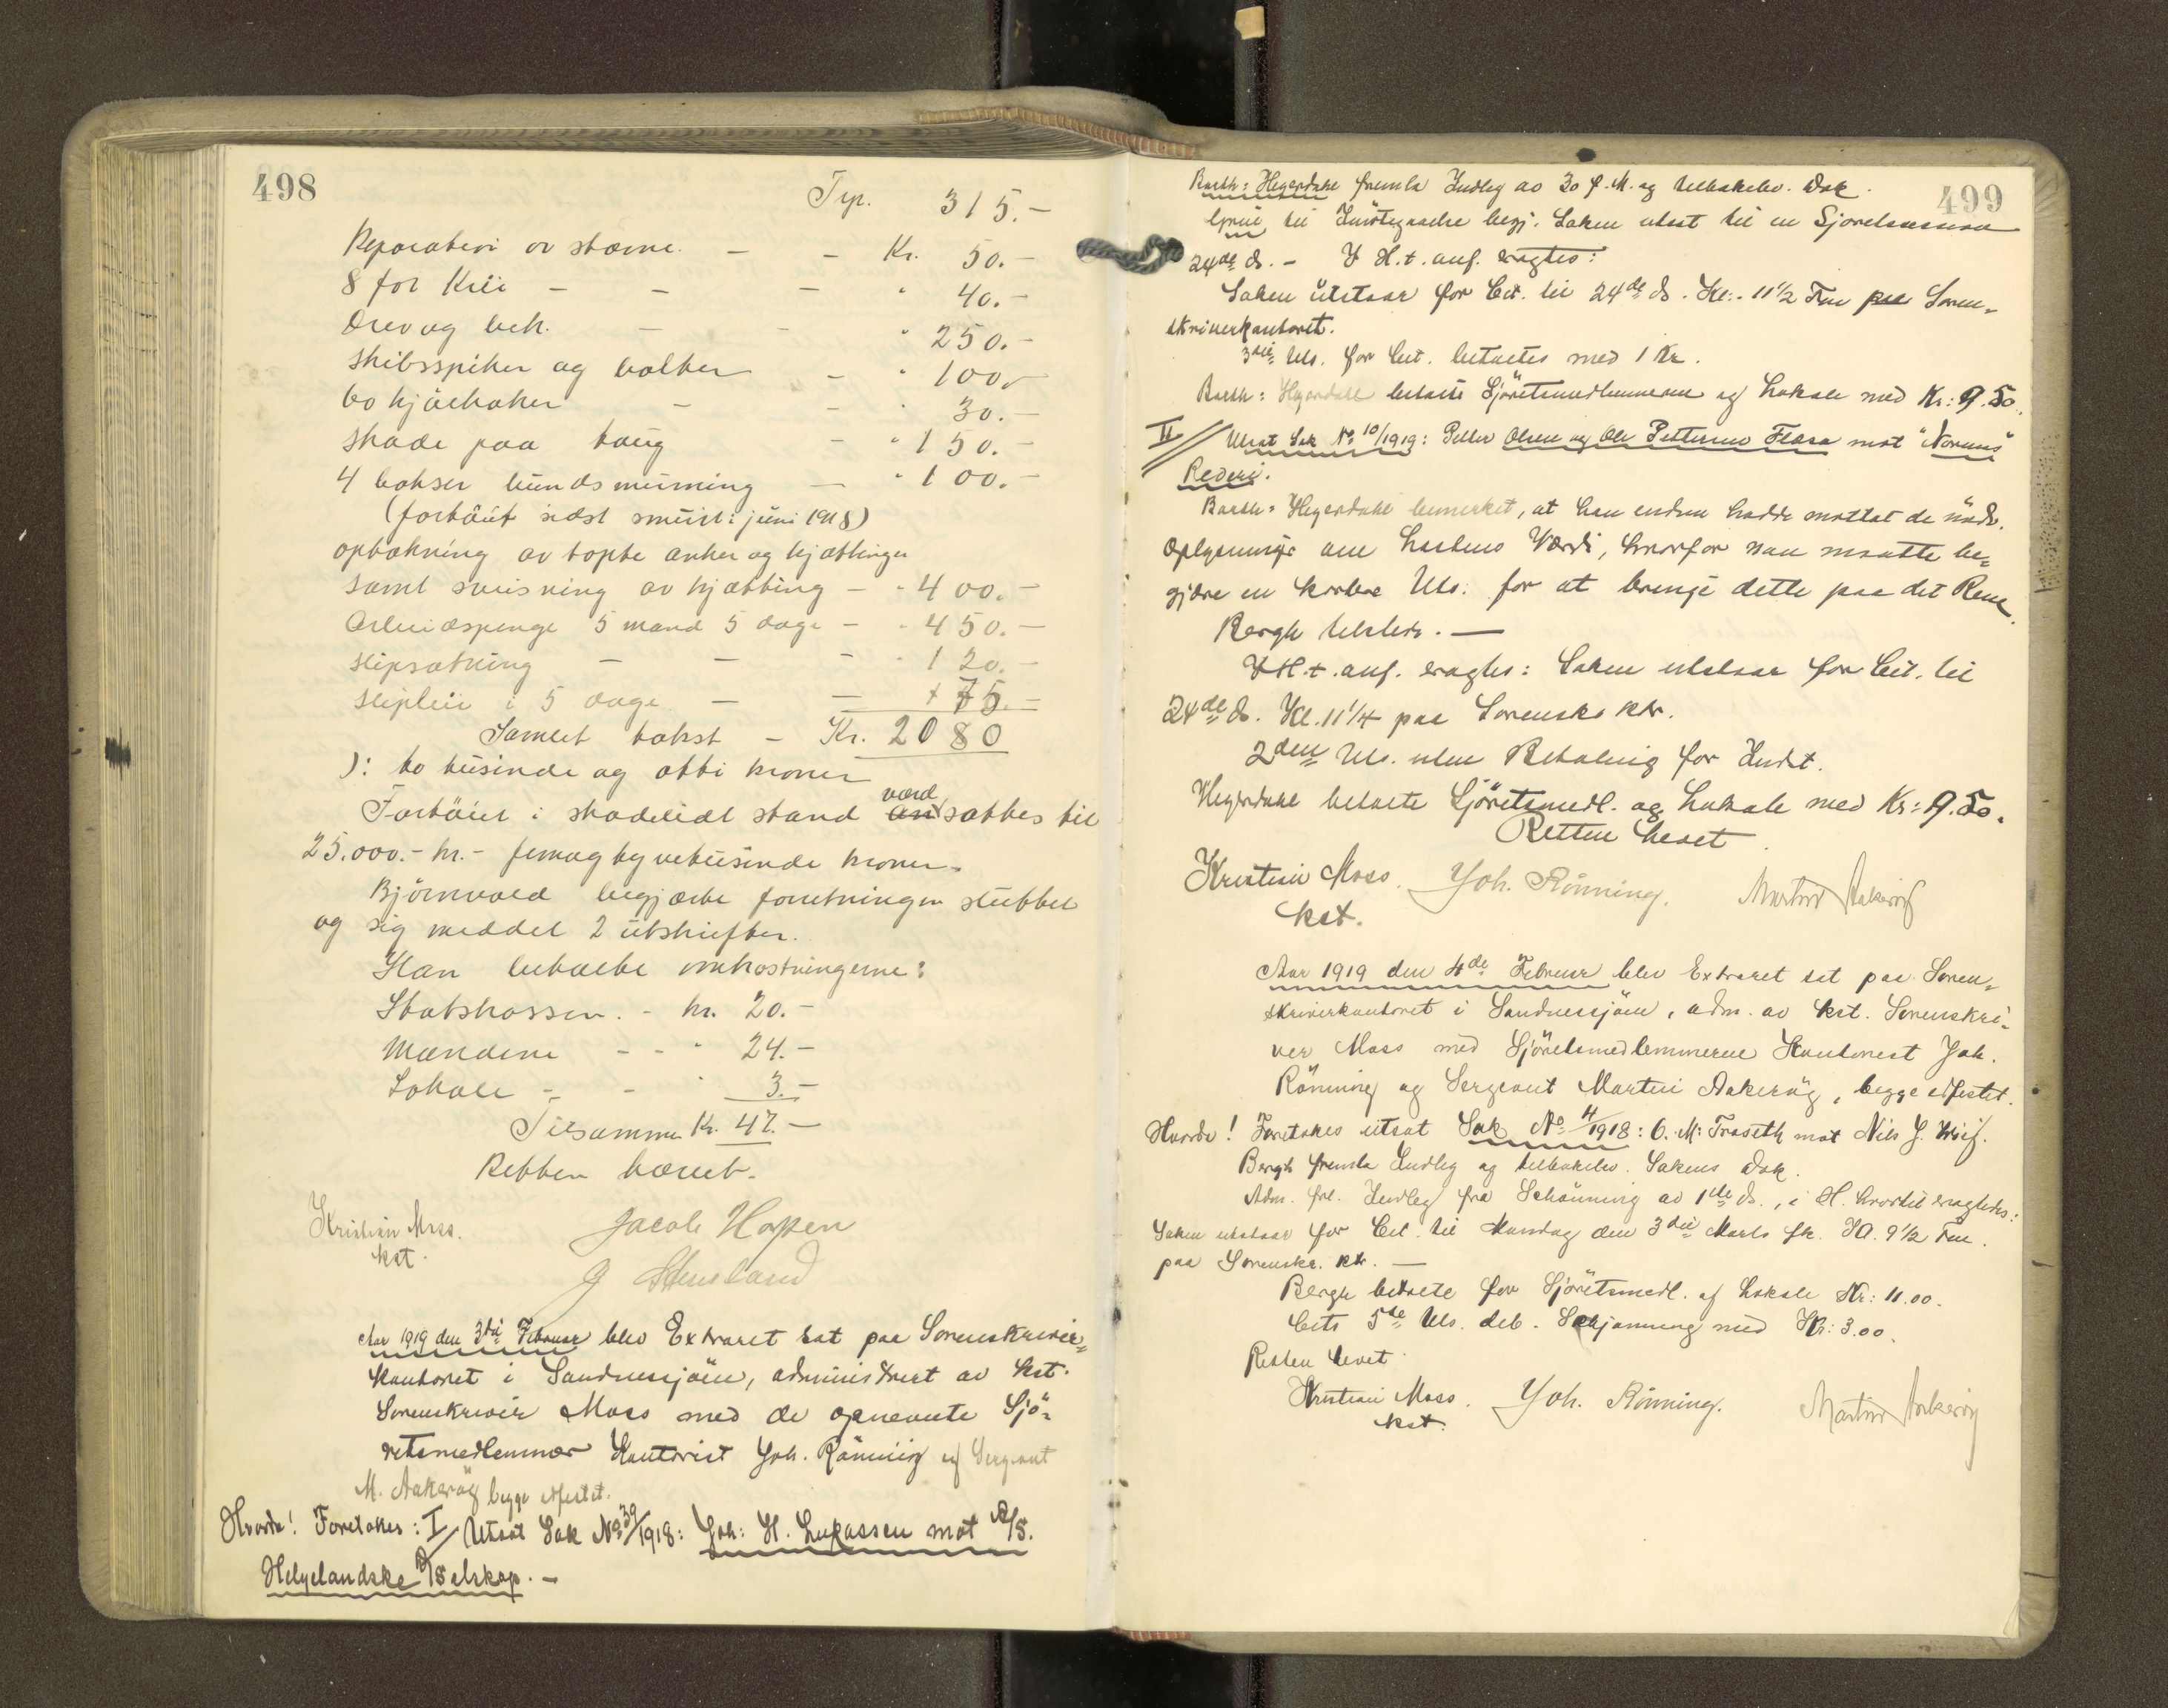 498
Trp. 315.-
Reparation av stævne. - - Kr. 50.-
8 fot Kiil - - - " 40.-
Drev og bek. - - " 250.-
skibsspiker og bolter - " 100.-
to kjækaker - - 30.-
skade paa taug - " 150.-
4 bokser bundsmurning - " 100.-
(fartöiet sidst smurt i juni 1918)
optakning av tapte anker og kjættinger
samt sveisning av kjætting - " 400.-
Arbeidspenge 5 mand 5 dage - " 450.-
slipsætning - - - " 120.-
slipleie i 5 dage - - + 75.-
Samlet takst - Kr. 2080
): to tusinde og otti kroner
værd
Fartöiet i skadelidt stand ansattes til
25.000.- kr.- femogtyvetusinde kroner.
Björnvold begjærte forretningen sluttet
og sig meddelt 2 utskrifter.
Han betalte omkostningerne:
Statskassen. - kr. 20.-
Mændene - - " 24.-
Lokale - - " 3.-
Tilsammen Kr. 47.-
Retten hævet.
Kristian Moss. Jacob Hopen
kst.
Aar 1919 den 3die Februar blev Extraret sat paa Sorenskriver-
kontoret i Sandnessjöen, administrert av kst.
Sorenskriver Moss med de opnevnte Sjö-
retsmedlemmer Kontorist Joh. Rönning og Sergeant
M. Aakeröy begge edfestet.
Hvorda! Foretokes: I/ Utsat Sak No 39/1918: Joh: H. Lukassen mot A/S.
Helgelandske D/Selskap. -
499
Barth: Hegerdahl fremla Indleg av 30 f.M. og tilbakelev. Dok.
til Imötegaaelse begj. Saken utsat til en Sjöretssession
24de ds. - I H.t. anf. eragtes:
Saken utstaar for Cit. til 24de ds. Kl.- 11½ Fm paa Soren-
skriverkontoret.
3die Uts. for Cit. betaltes med 1 Kr.
Barth: Hegerdahl betalte Sjöretsmedlemmerne og Lokale med Kr: 9.50.
II/ Utsat Sak No 10/1919: Petter Olsen og Ole Pettersens Flæsa mot "Noruns"
Rederi.
Barth: Hegerdahl bemerket, at han endnu hadde mottat de nödv.
Oplysninger om Lastens Værdi, hvorfor han maatte be-
gjære en kortere Uts. for at bringe dette paa det Rene.
Bergh tilsteds. -
I H.t. anf. eragtes: Saken utstaar for Cit. til
24de ds. Kl. 11¼ paa Sorensks ktr.
2den Uts. uten Betaling for Indst.
Hegerdahl betalte Sjöretsmedl. og Lokale med Kr: 9.50.
Retten hevet.
Kristian Moss. Joh. Rönning. Martin Aakeröy
kst.
Aar 1919 den 4de Februar blev Extraret sat paa Soren-
skriverkontoret i Sandnessjöen, adm. av kst. Sorenskri-
ver Moss med Sjöretsmedlemmerne Kontorist Joh.
Rönning og Sergeant Martin Aakeröy, begge edfestet.
Hvorda! Foretokes utsat Sak No 4/1918: O. M. Traseth mot Nils J.
Bergh fremla Indleg og tilbakelev. Sakens Dok.
Adm. frl. Indleg fra Schönning av 1ste ds., i H. hvortil eragtedes:
Saken utstaar for Cit. til Mandag den 3die Marts fk. Kl. 9½ Fm.
paa Sorenskr. ktr. -
Bergh betalte for Sjöretsmedl. og Lokale Kr: 11.00.
Cits 5te Uts. deb. Schjönning med Kr: 3.00.
Retten hevet.
Kristian Moss. Joh. Rönning. Martin Aakeröy
kst.